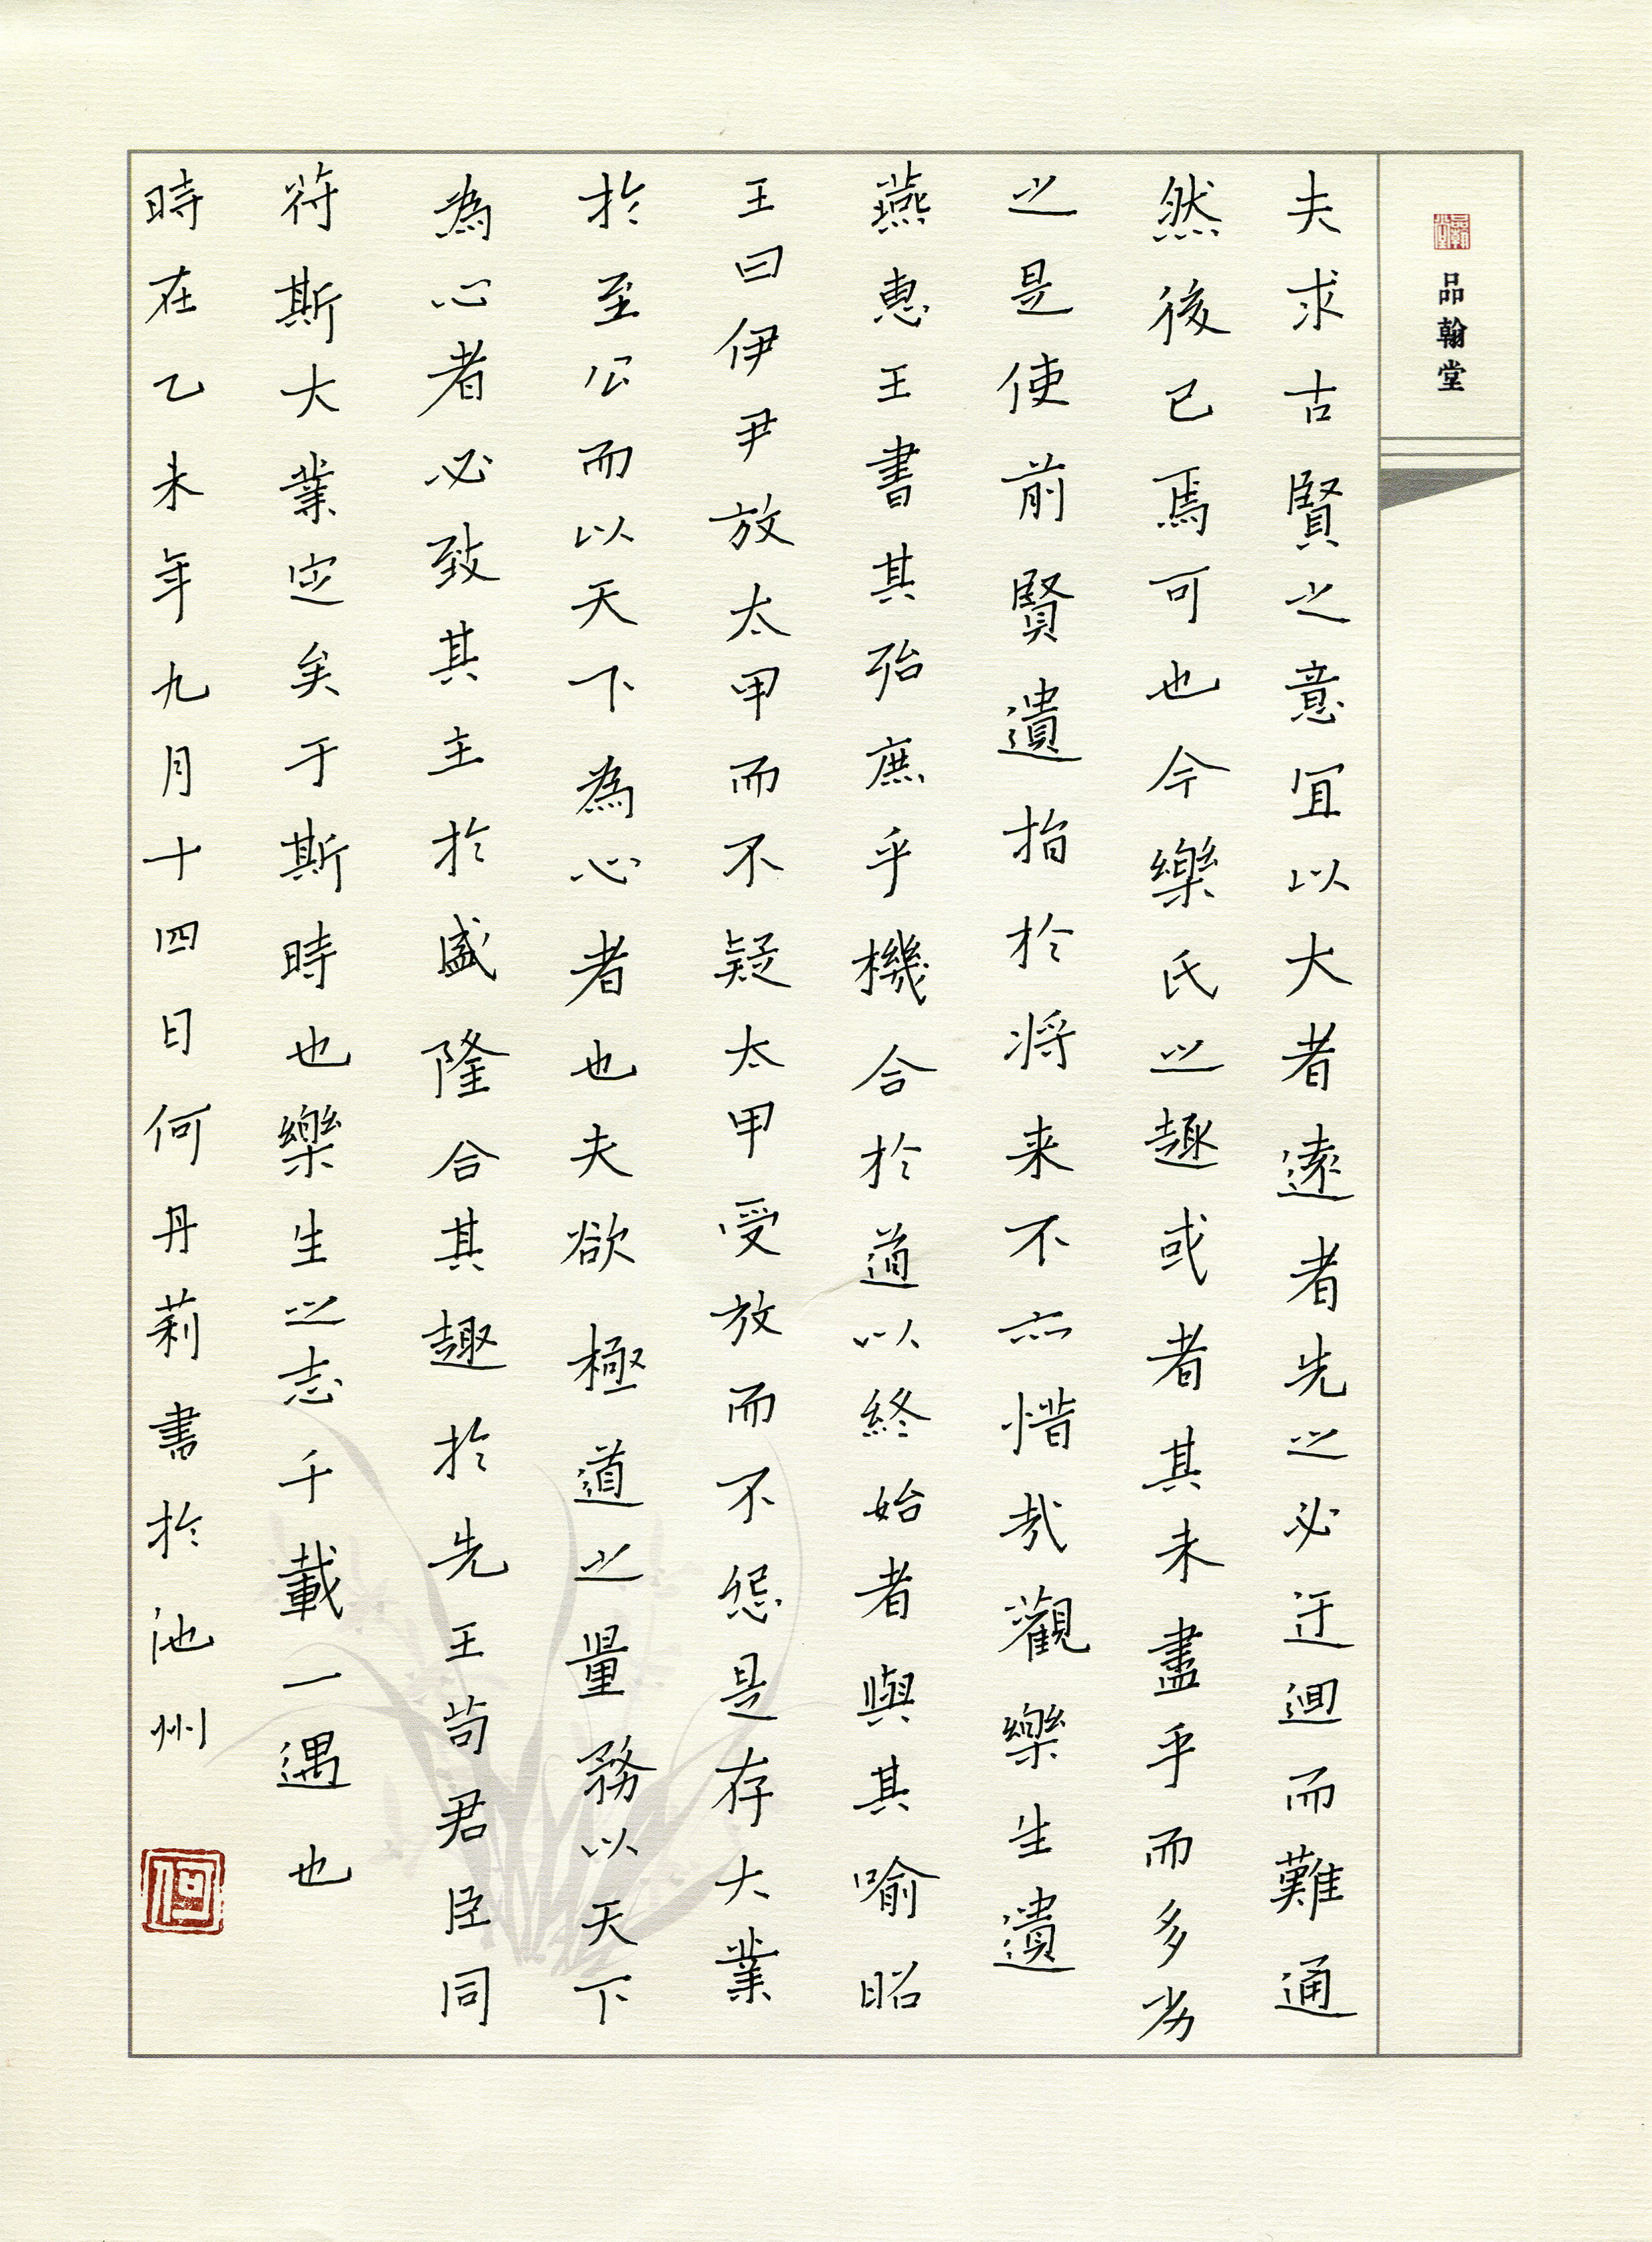 品翰堂
夫求古賢之意宜以大者遠者先之必迂迴而難通
然後已焉可也今樂氏之趣或者其未盡乎而多劣
之是使前賢遺指於将来不亦惜哉觀樂生遺
燕惠王書其殆庶乎機合於道以終始者與其喻昭
王曰伊尹放太甲而不疑太甲受放而不怨是存大業
於至公而以天下為心者也夫欲極道之量務以天下
為心者必致其主於盛隆合其趣於先王苟君臣同
符斯大業定矣于斯時也樂生之志千載一遇也
時在乙未年九月十四日何丹莉書於池州